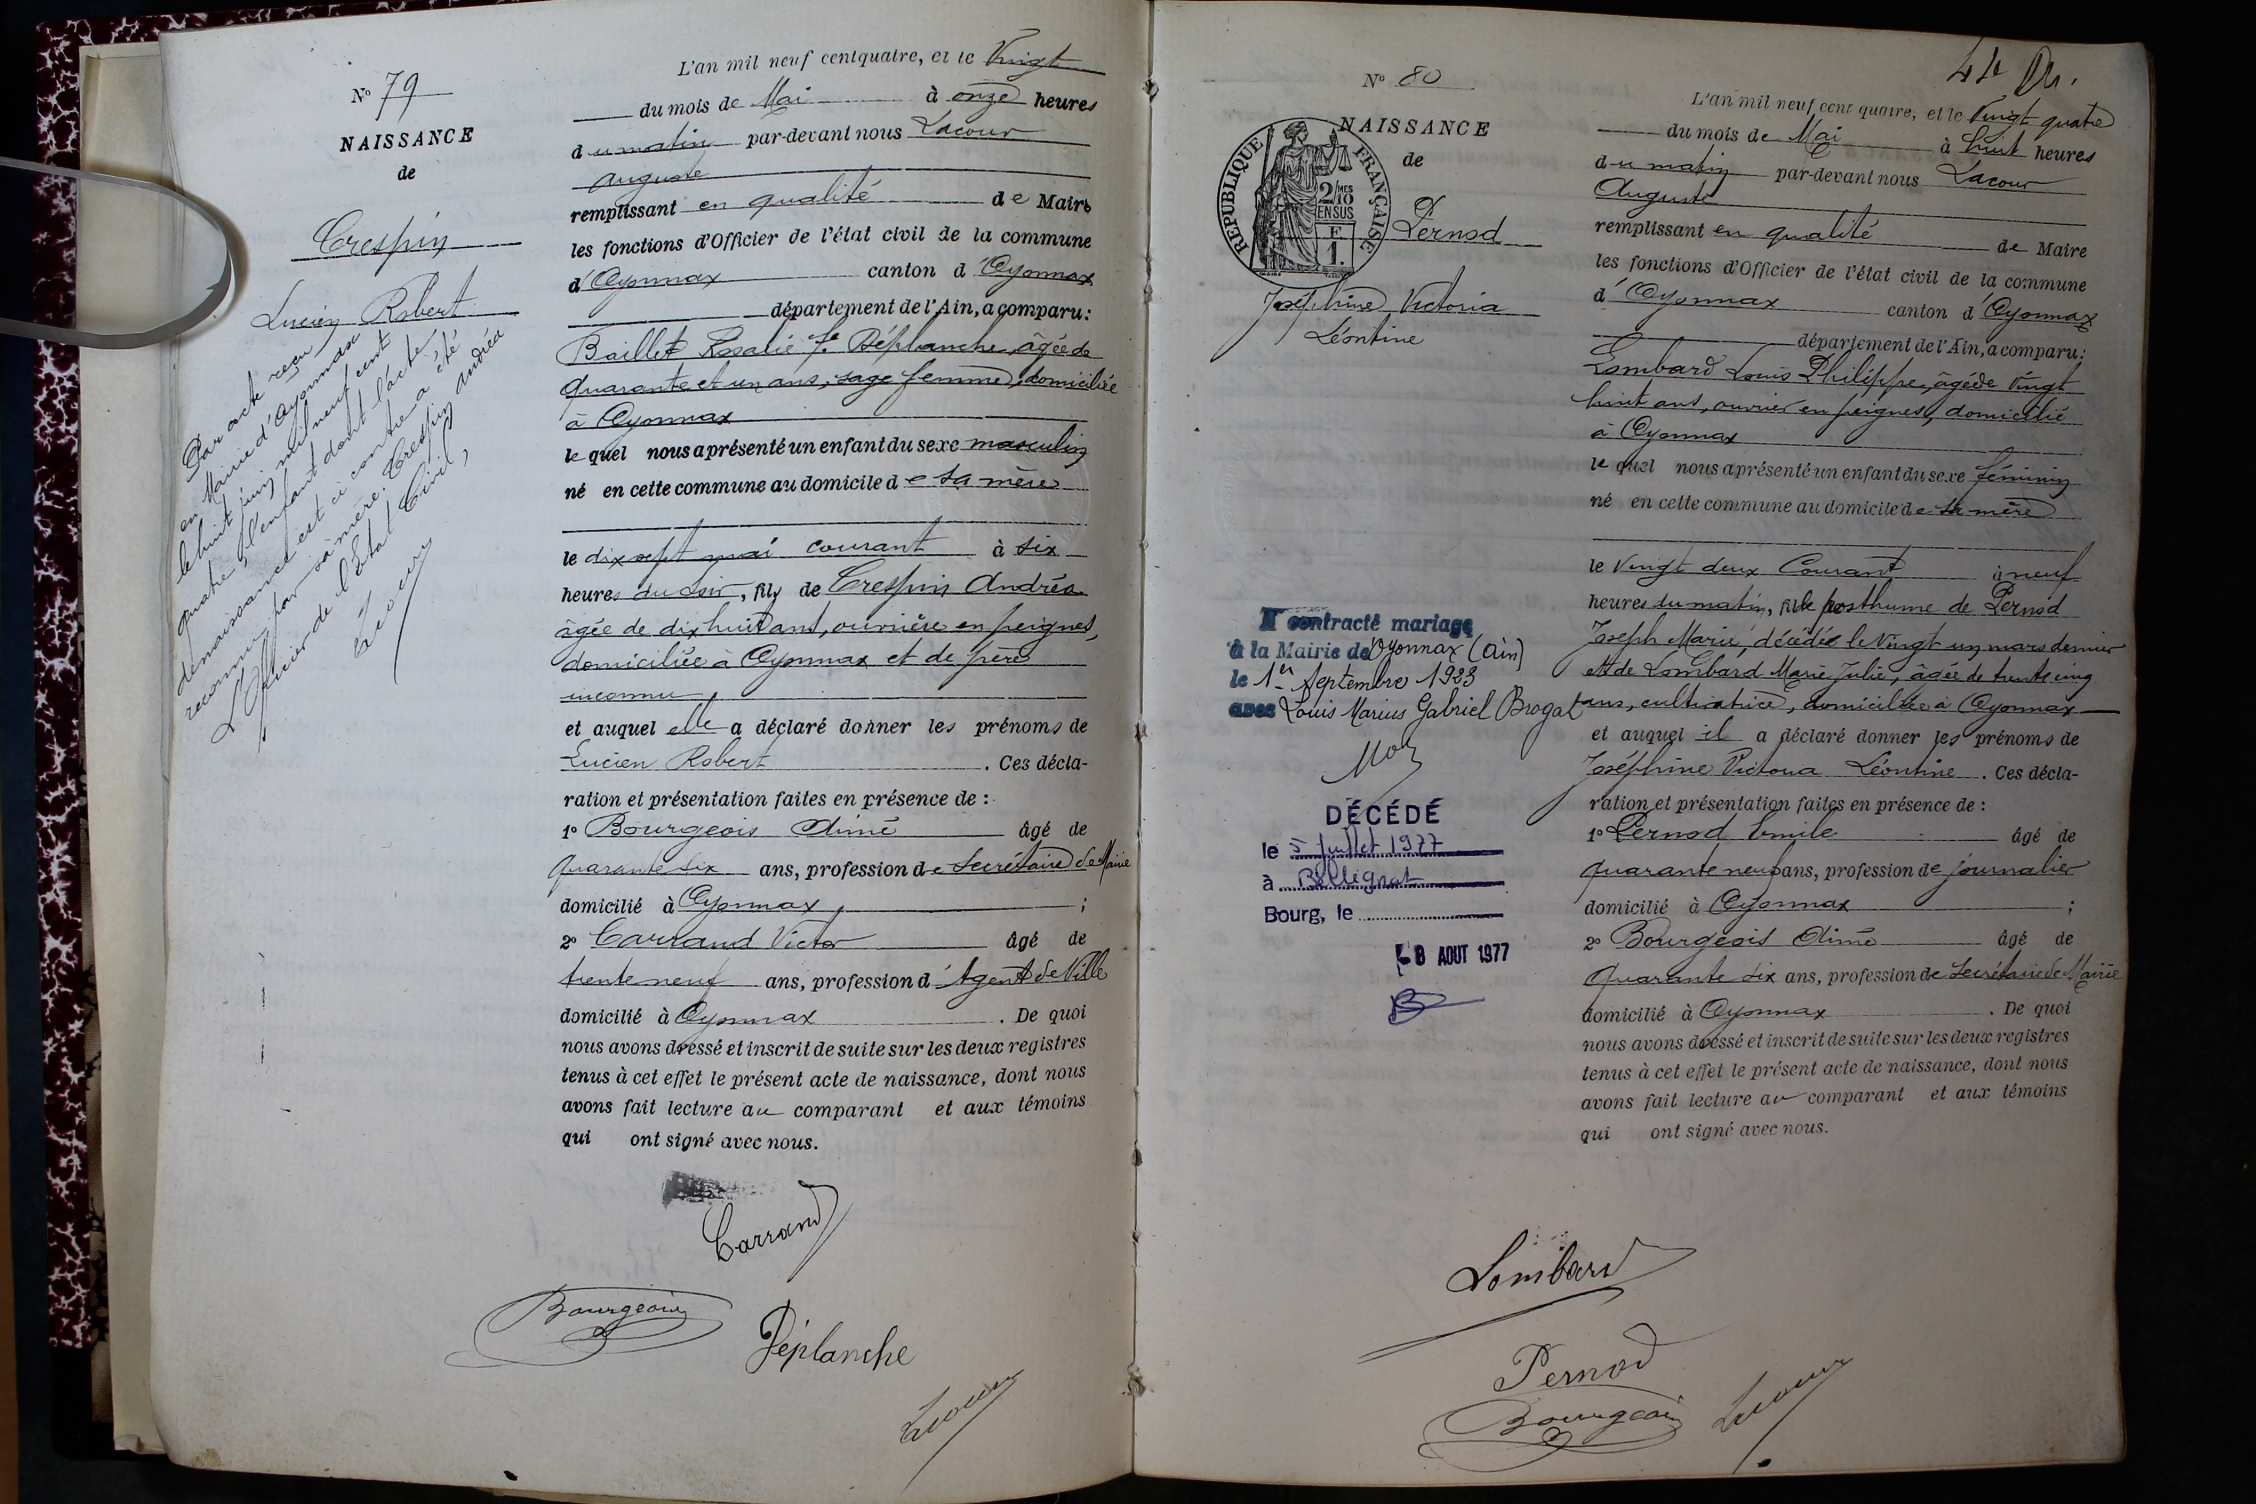 Nº 79
NAISSANCE
de
Crespin
Lucien Robert
Par acte reçu
en Mairie d'Oyonnax
le huit juin mil neuf cent
quatre, l'enfant dont l'acte
de naissance est ci contre a été
reconnu par sa mère Crespin Andréa
L'Officier de l'Etat Civil,
Lacour
L'an mil neuf cent quatre, et le Vingt
du mois de Mai à onze heures
du matin par-devant nous Lacour
Auguste
remplissant en qualité de Maire
les fonctions d'Officier de l'état civil de la commune
d'Oyonnax canton d'Oyonnax
département de l'Ain, a comparu:
Baillet Rosalie fe Déplanche, âgée de
quarante et un ans, sage femme, domiciliée
à Oyonnax
le quel nous a présenté un enfant du sexe masculin
né en cette commune au domicile de sa mère
le dix sept mai courant à six
heures du soir, fils de Crespin Andréa
âgée de dix huit ans, ouvrière en peignes,
domiciliée à Oyonnax et de père
inconnu
et auquel elle a déclaré donner les prénoms de
Lucien Robert . Ces décla-
ration et présentation faites en présence de :
1º Bourgeois Aimé âgé de
quarante six ans, profession de Secrétaire de Mairie
domicilié à Oyonnax ;
2º Carrand Victor âgé de
trente neuf ans, profession d'Agent de Ville
domicilié à Oyonnax . De quoi
nous avons dressé et inscrit de suite sur les deux registres
tenus à cet effet le présent acte de naissance, dont nous
avons fait lecture au comparant et aux témoins
qui ont signé avec nous.
Carrand
Bourgeois
Déplanche
Lacour
Nº 80
NAISSANCE
de
RÉPUBLIQUE FRANÇAISE
2/10 MES
EN SUS
F
1.
Pernod
Joséphine Victoria
Léontine
A contracté mariage
à la Mairie de Oyonnax (Ain)
le 1er Septembre 1923
avec Louis Marius Gabriel Brogat
DÉCÉDÉ
le 5 juillet 1977
à Bellignat
Bourg, le
8 AOUT 1977
L'an mil neuf cent quatre, et le Vingt quatre
du mois de Mai à huit heures
du matin par-devant nous Lacour
Auguste
remplissant en qualité de Maire
les fonctions d'Officier de l'état civil de la commune
d'Oyonnax canton d'Oyonnax
département de l'Ain, a comparu:
Lombard Louis Philippe, âgé de Vingt
huit ans, ouvrier en peignes, domicilié
à Oyonnax
le quel nous a présenté un enfant du sexe féminin
né en cette commune au domicile de sa mère
le Vingt deux Courant à neuf
heures du matin, fille posthume de Pernod
Joseph Marie, décédé le Vingt un mars dernier
et de Lombard Marie Julie, âgée de trente cinq
ans, cultivatrice, domiciliée à Oyonnax
et auquel il a déclaré donner les prénoms de
Joséphine Victoria Léontine . Ces décla-
ration et présentation faites en présence de :
1º Pernod Emile âgé de
quarante neuf ans, profession de journalier
domicilié à Oyonnax ;
2º Bourgeois Aimé âgé de
quarante six ans, profession de Secrétaire de Mairie
domicilié à Oyonnax . De quoi
nous avons dressé et inscrit de suite sur les deux registres
tenus à cet effet le présent acte de naissance, dont nous
avons fait lecture au comparant et aux témoins
qui ont signé avec nous.
Lombard
Pernod
Bourgeois
Lacour